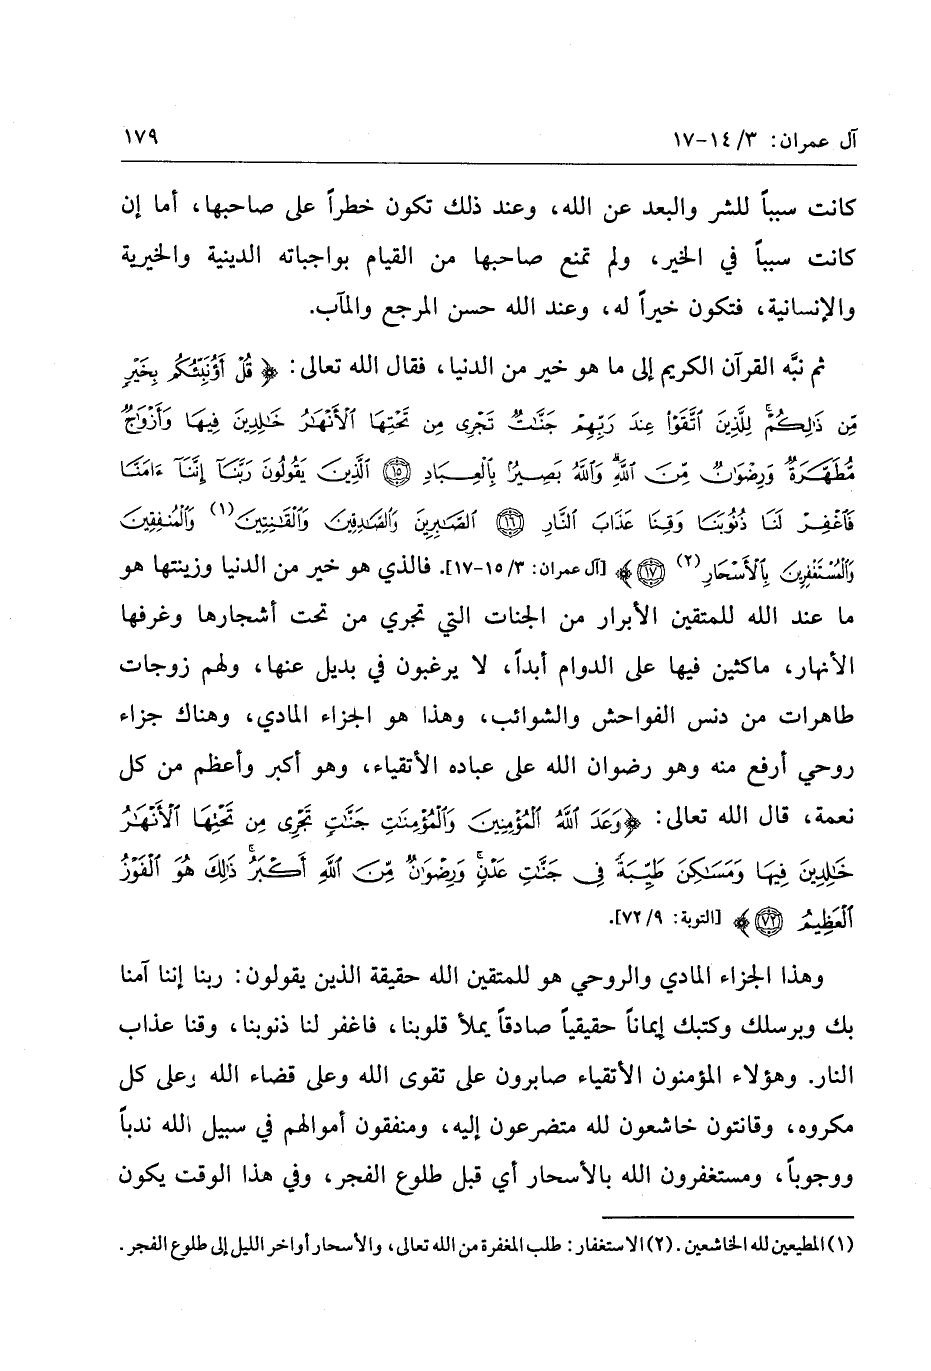 آل عمران: ٣/ ١٤-١٧ ١٧٩
كانت سبباً للشر والبعد عن الله، وعند ذلك تكون خطراً على صاحبها، أما إن
كانت سبباً في الخير، ولم تمنع صاحبها من القيام بواجباته الدينية والخيرية
والإنسانية، فتكون خيراً له، وعند الله حسن المرجع والمآب.
ثم نبَّه القرآن الكريم إلى ما هو خير من الدنيا، فقال الله تعالى: ﴿ قُلْ أَؤُنَبِّئُكُم بِخَيْرٍ
مِّن ذَٰلِكُمْۚ لِلَّذِينَ ٱتَّقَوْا۟ عِندَ رَبِّهِمْ جَنَّٰتٌ تَجْرِى مِن تَحْتِهَا ٱلْأَنْهَٰرُ خَٰلِدِينَ فِيهَا وَأَزْوَٰجٌ
مُّطَهَّرَةٌ وَرِضْوَٰنٌ مِّنَ ٱللَّهِۗ وَٱللَّهُ بَصِيرٌۢ بِٱلْعِبَادِ ⑮ ٱلَّذِينَ يَقُولُونَ رَبَّنَآ إِنَّنَآ ءَامَنَّا
فَٱغْفِرْ لَنَا ذُنُوبَنَا وَقِنَا عَذَابَ ٱلنَّارِ ⑯ ٱلصَّٰبِرِينَ وَٱلصَّٰدِقِينَ وَٱلْقَٰنِتِينَ(١) وَٱلْمُنفِقِينَ
وَٱلْمُسْتَغْفِرِينَ بِٱلْأَسْحَارِ(٢) ⑰ ﴾ [آل عمران: ٣/ ١٥-١٧]. فالذي هو خير من الدنيا وزينتها هو
ما عند الله للمتقين الأبرار من الجنات التي تجري من تحت أشجارها وغرفها
الأنهار، ماكثين فيها على الدوام أبداً، لا يرغبون في بديل عنها، ولهم زوجات
طاهرات من دنس الفواحش والشوائب، وهذا هو الجزاء المادي، وهناك جزاء
روحي أرفع منه وهو رضوان الله على عباده الأتقياء، وهو أكبر وأعظم من كل
نعمة، قال الله تعالى: ﴿وَعَدَ ٱللَّهُ ٱلْمُؤْمِنِينَ وَٱلْمُؤْمِنَٰتِ جَنَّٰتٍ تَجْرِى مِن تَحْتِهَا ٱلْأَنْهَٰرُ
خَٰلِدِينَ فِيهَا وَمَسَٰكِنَ طَيِّبَةً فِى جَنَّٰتِ عَدْنٍۚ وَرِضْوَٰنٌ مِّنَ ٱللَّهِ أَكْبَرُۚ ذَٰلِكَ هُوَ ٱلْفَوْزُ
ٱلْعَظِيمُ ٧٢ ﴾ [التوبة: ٩/ ٧٢].
وهذا الجزاء المادي والروحي هو للمتقين الله حقيقة الذين يقولون: ربنا إننا آمنا
بك وبرسلك وكتبك إيماناً حقيقياً صادقاً يملأ قلوبنا، فاغفر لنا ذنوبنا، وقنا عذاب
النار. وهؤلاء المؤمنون الأتقياء صابرون على تقوى الله وعلى قضاء الله وعلى كل
مكروه، وقانتون خاشعون لله متضرعون إليه، ومنفقون أموالهم في سبيل الله ندباً
ووجوباً، ومستغفرون الله بالأسحار أي قبل طلوع الفجر، وفي هذا الوقت يكون
(١) المطيعين لله الخاشعين. (٢) الاستغفار: طلب المغفرة من الله تعالى، والأسحار أواخر الليل إلى طلوع الفجر.